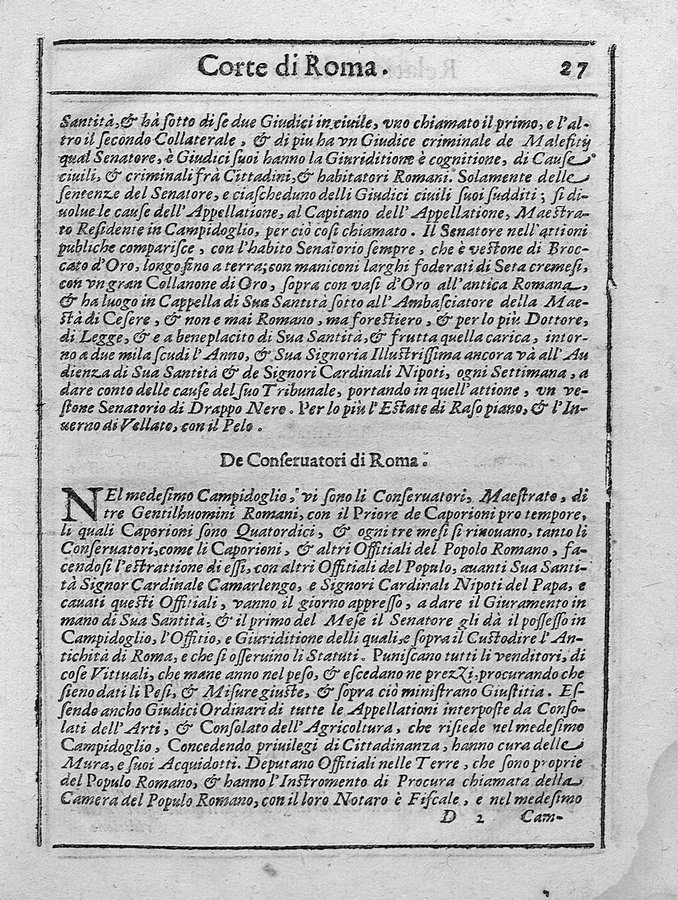 Corte di Roma. 27
Santità, & hà sotto di se due Giudici in ciuile, vno chiamato il primo, e l'al-
tro il secondo Collaterale, & di piu ha vn Giudice criminale de Malefitij
qual Senatore, è Giudici suoi hanno la Giuriditione è cognitione, di Cause
ciuili, & criminali frà Cittadini, & habitatori Romani. Solamente delle
sentenze del Senatore, e ciascheduno delli Giudici ciuili suoi sudditi; si di-
uolue le cause dell'Appellatione, al Capitano dell'Appellatione, Maestra-
to Residente in Campidoglio, per ciò cosi chiamato. Il Senatore nell'attioni
publiche comparisce, con l'habito Senatorio sempre, che è vestone di Broc-
cato d'Oro, longo fino a terra; con maniconi larghi foderati di Seta cremesi,
con vn gran Collanone di Oro, sopra con vasi d'Oro all'antica Romana,
& ha luogo in Cappella di Sua Santità sotto all'Ambasciatore della Mae-
stà di Cesere, & non e mai Romano, ma forestiero, & per lo più Dottore,
di Legge, & e a beneplacito di Sua Santità, & frutta quella carica, intor-
no a due mila scudi l'Anno, & Sua Signoria Illustrissima ancora và all'Au
dienza di Sua Santità & de Signori Cardinali Nipoti, ogni Settimana, a
dare conto delle cause del suo Tribunale, portando in quell'attione, vn ve-
stone Senatorio di Drappo Nero. Per lo più l'Estate di Raso piano, & l'In-
uerno di Vellato, con il Pelo.
De Conseruatori di Roma.
NEl medesimo Campidoglio, vi sono li Conseruatori, Maestrato, di
tre Gentilhuomini Romani, con il Priore de Caporioni pro tempore,
li quali Caporioni sono Quatordici, & ogni tre mesi si rinouano, tanto li
Conseruatori, come li Caporioni, & altri Offitiali del Popolo Romano, fa-
cendosi l'estrattione di essi, con altri Offitiali del Populo, auanti Sua Santi-
tà Signor Cardinale Camarlengo, e Signori Cardinali Nipoti del Papa, e
cauati questi Offitiali, vanno il giorno appresso, a dare il Giuramento in
mano di Sua Santità, & il primo del Mese il Senatore gli dà il possesso in
Campidoglio, l'Offitio, e Giuriditione delli quali, e sopra il Custodire l'An-
tichità di Roma, e che si osseruino li Statuti. Puniscano tutti li venditori, di
cose Vittuali, che mane anno nel peso, & escedano ne prezzi, procurando che
sieno dati li Pesi, & Misure giuste, & sopra ciò ministrano Giustitia. Es-
sendo ancho Giudici Ordinari di tutte le Appellationi interposte da Conso-
lati dell'Arti, & Consolato dell'Agricoltura, che risiede nel medesimo
Campidoglio, Concedendo priuilegi di Cittadinanza, hanno cura delle
Mura, e suoi Acquidotti. Deputano Offitiali nelle Terre, che sono proprie
del Populo Romano, & hanno l'Instromento di Procura chiamata della
Camera del Populo Romano, con il loro Notaro è Fiscale, e nel medesimo
D 2 Cam-